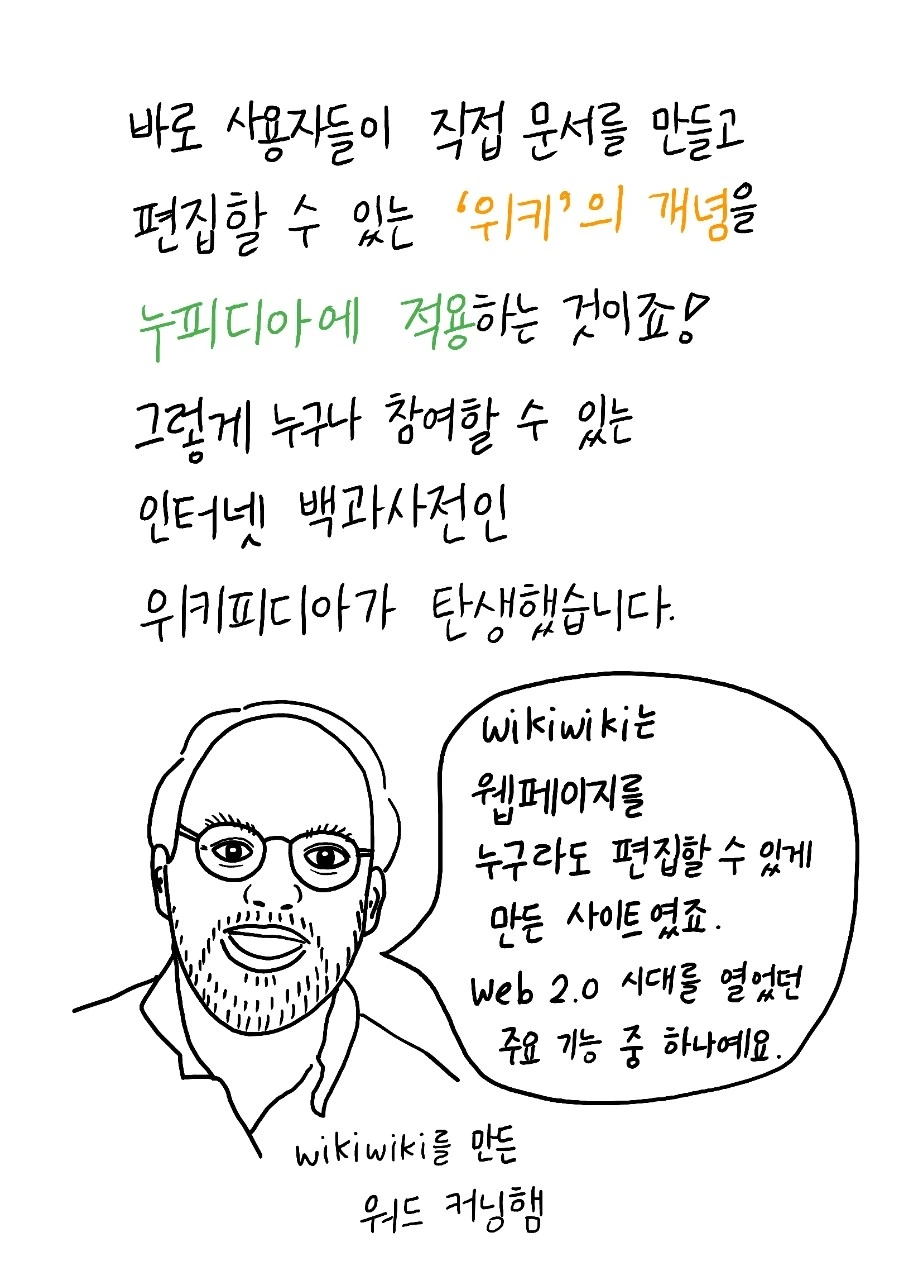 바로 사용자들이 직접 문서를 만들고
편집할 수 있는 '위키'의 개념을
누피디아에 적용하는 것이죠!
그렇게 누구나 참여할 수 있는
인터넷 백과사전인
위키피디아가 탄생했습니다.
wikiwiki는
웹페이지를
누구라도 편집할 수 있게
만든 사이트였죠.
Web 2.0 시대를 열었던
주요 기능 중 하나예요.
wikiwiki를 만든
워드 커닝햄